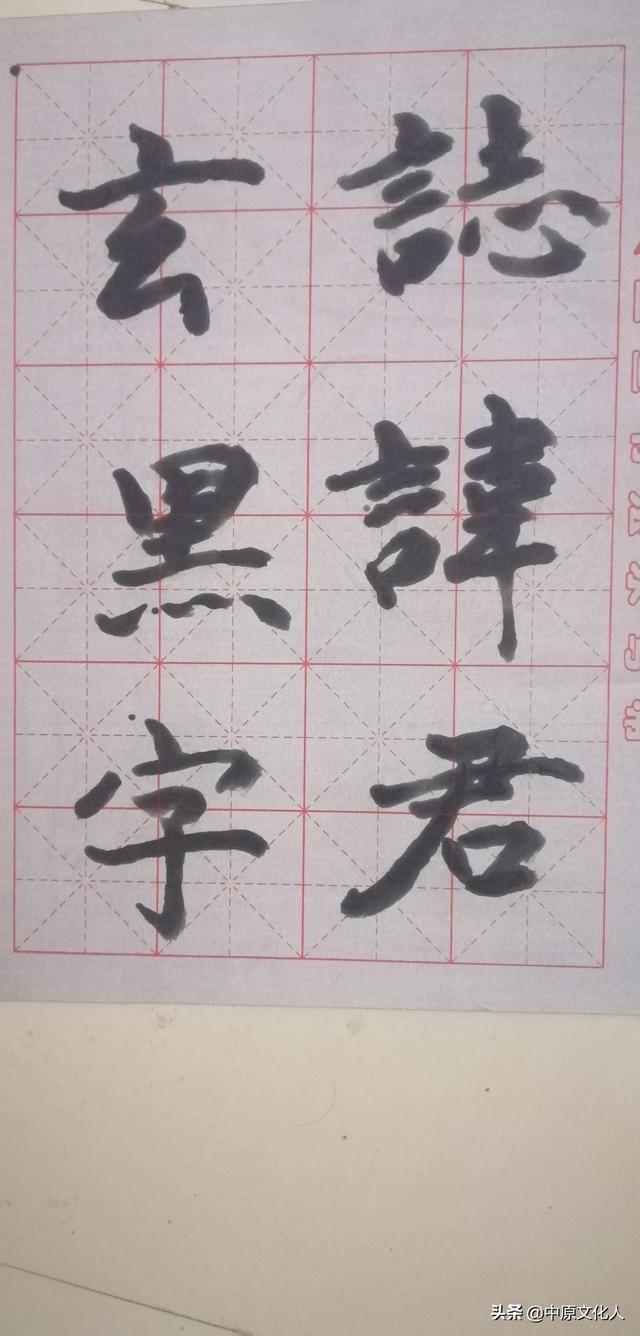 誌諱君
字黑玄
头条 @中原文化人